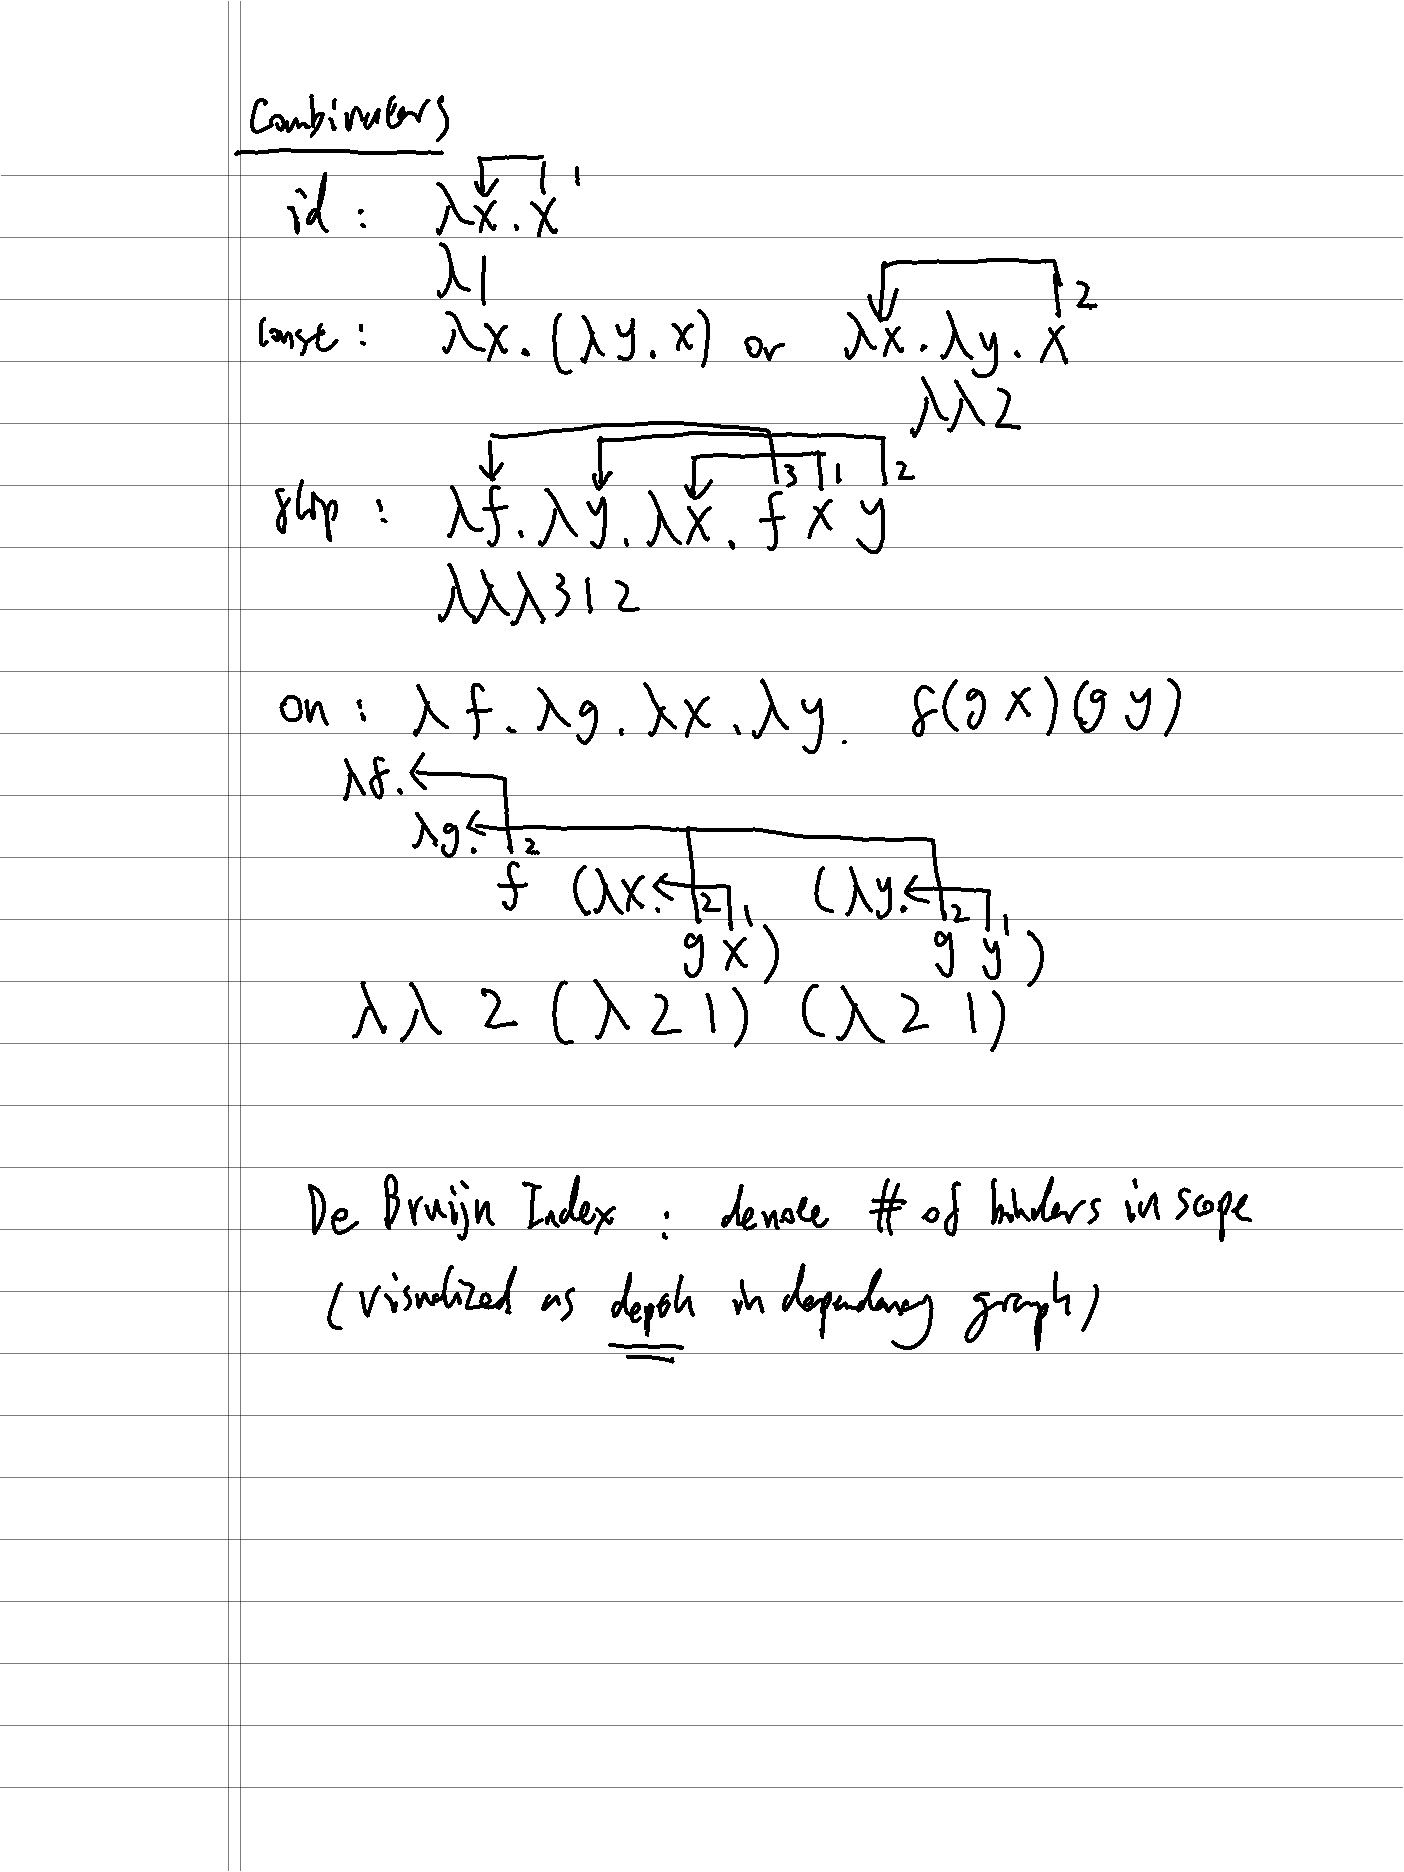 Combinators
id : λx. x 1
λ1
const : λx. (λy. x) or λx. λy. x 2
λλ2
flip : λf. λy. λx. f 3 x 1 y 2
λλλ312
on : λf. λg. λx. λy. f(g x)(g y)
λf.
λg.
f 2 (λx. (λy.
g 2 x 1) g 2 y 1)
λλ 2 (λ 2 1) (λ 2 1)
De Bruijn Index : denote # of binders in scope
(visualized as depth in dependency graph)